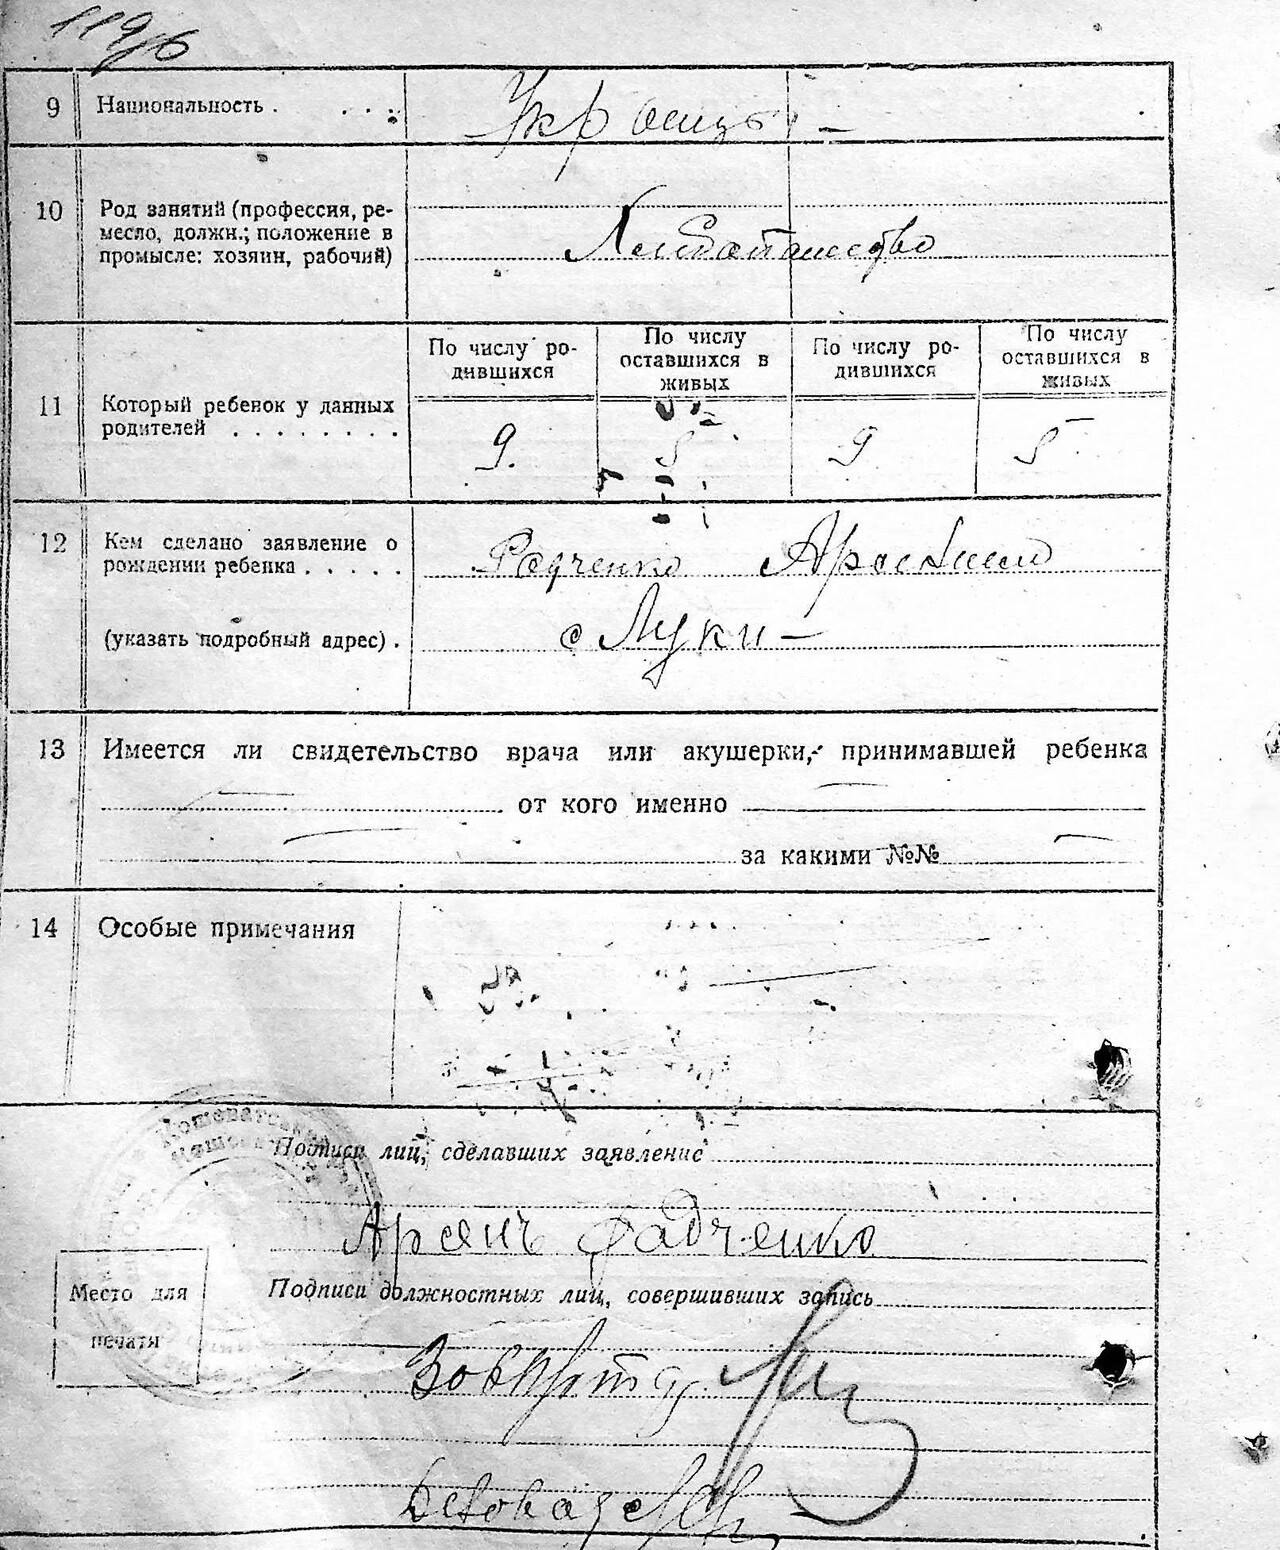 119
9 Национальность . . . :
Укра
10 Род занятий (профессия, ре-
месло, должн.; положение в
промысле: хозяин, рабочий)
По числу ро-
дившихся
По числу
оставшихся в
живых
По числу ро-
дившихся
По числу
оставшихся в
живых
11 Который ребенок у данных
родителей . . . . . . . .
9. 5 9 5
12 Кем сделано заявление о
рождении ребенка . . . . .
Радченко
(указать подробный адрес) .
с Луки –
13 Имеется ли свидетельство врача или акушерки, принимавшей ребенка
от кого именно
за какими №№
14 Особые примечания
Подписи лиц, сделавших заявление
Арсенъ Радченко
Подписи должностных лиц, совершивших запись
Место для
печати